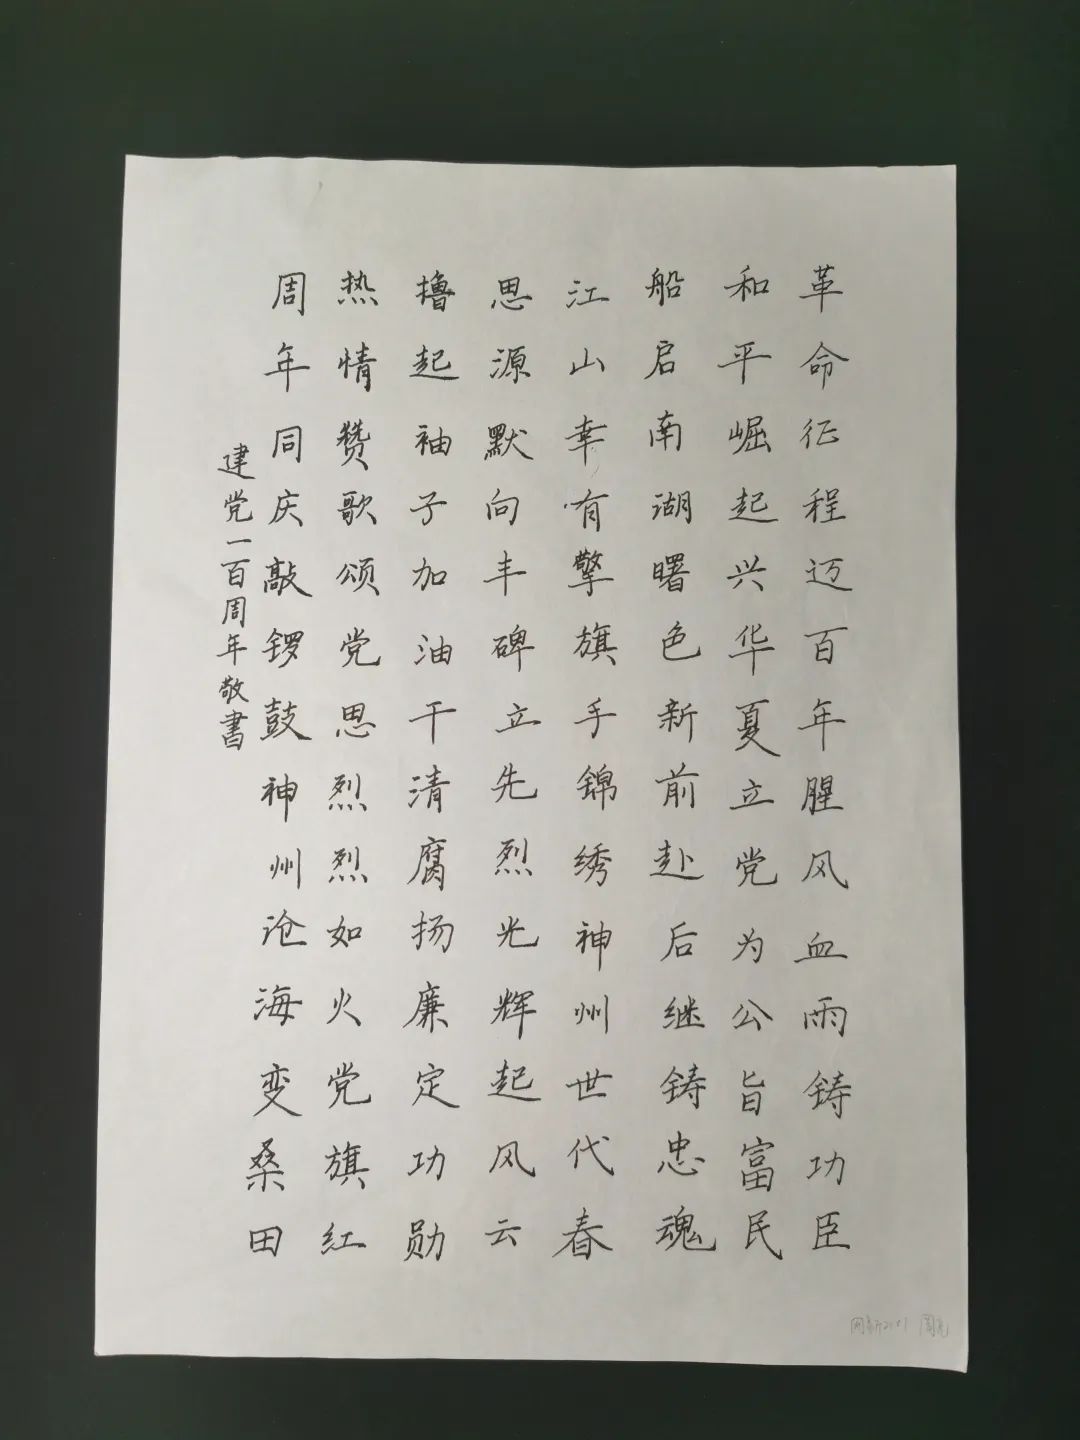 革命征程迈百年腥风血雨铸功臣
和平崛起兴华夏立党为公旨富民
船启南湖曙色新前赴后继铸忠魂
江山幸有擎旗手锦绣神州世代春
思源默向丰碑立先烈光辉起风云
撸起袖子加油干清腐扬廉定功勋
热情赞歌颂党恩烈烈如火党旗红
周年同庆敲锣鼓神州沧海变桑田
建党一百周年敬书